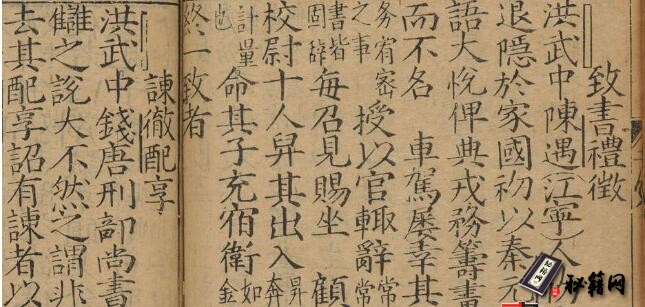 致書禮徵
洪武中陳遇江寧人
退隱於家國初以秦元
語大悅俾典戎務籌畫
而不名 車駕屢幸其
務宥密之事 授以官輒辭 常
書皆固辭 每召見賜坐 顧
校尉十人舁其出入 舁奔
計量也 命其子充宿衛 如金
終一致者
諫徹配享
洪武中錢唐刑部尚書
讎之說大不然之謂非
去其配享詔有諫者以
秘籍网